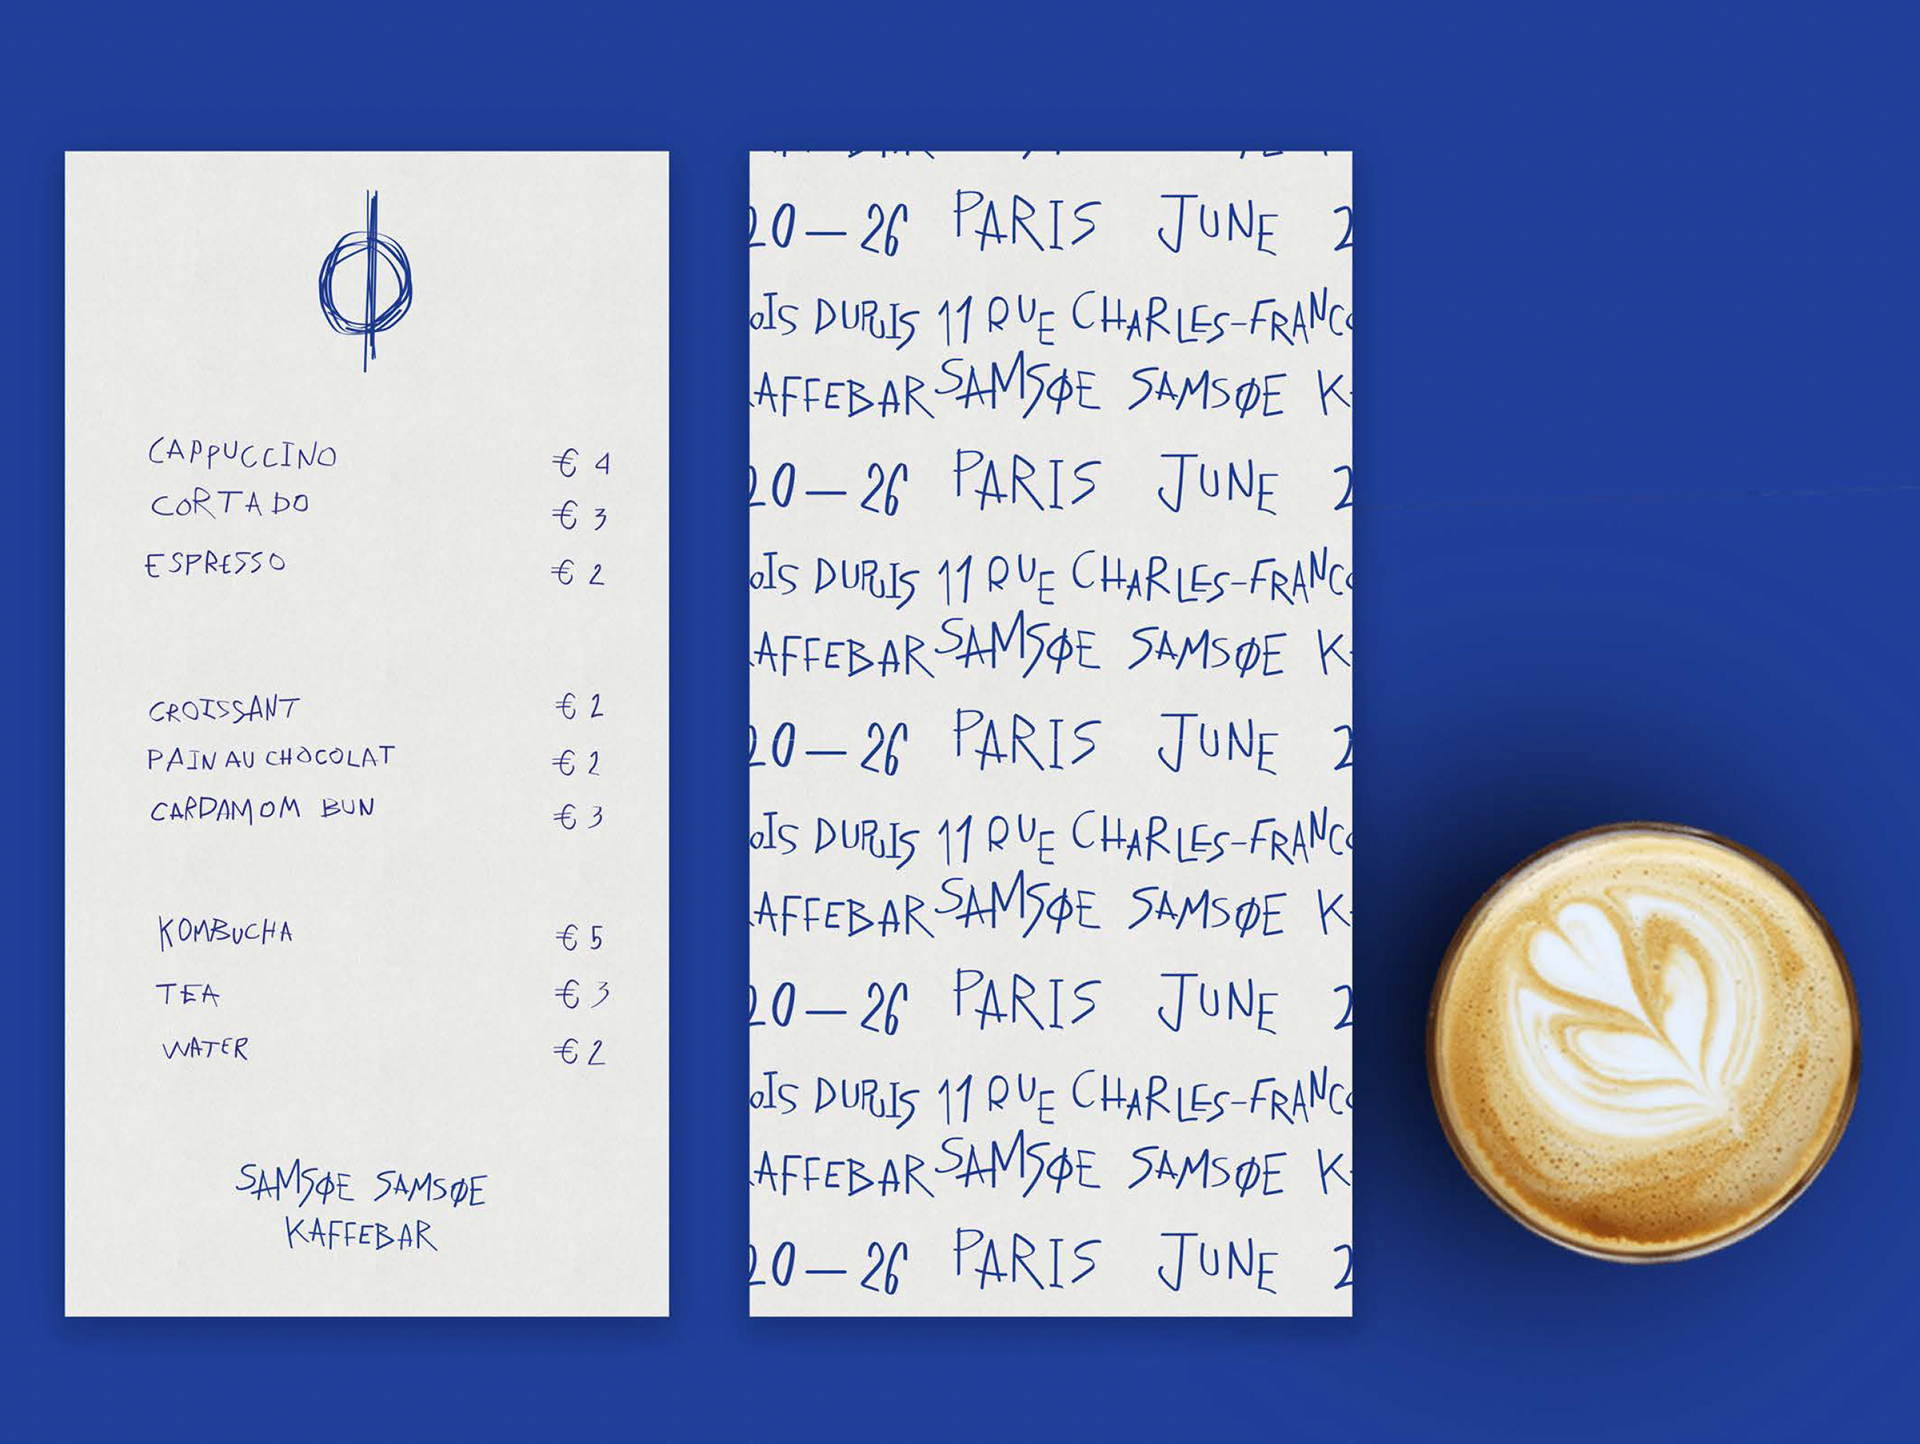 CAPPUCCINO € 4
CORTADO € 3
ESPRESSO € 2
CROISSANT € 2
PAIN AU CHOCOLAT € 2
CARDAMOM BUN € 3
KOMBUCHA € 5
TEA € 3
WATER € 2
SAMSØE SAMSØE
KAFFEBAR
20—26 PARIS JUNE 2
OIS DUPUIS 11 RUE CHARLES-FRANÇ
AFFEBAR SAMSØE SAMSØE K
20—26 PARIS JUNE 2
OIS DUPUIS 11 RUE CHARLES-FRANÇ
AFFEBAR SAMSØE SAMSØE K
20—26 PARIS JUNE 2
OIS DUPUIS 11 RUE CHARLES-FRANÇ
AFFEBAR SAMSØE SAMSØE K
20—26 PARIS JUNE 2
OIS DUPUIS 11 RUE CHARLES-FRANÇ
AFFEBAR SAMSØE SAMSØE K
20—26 PARIS JUNE 2